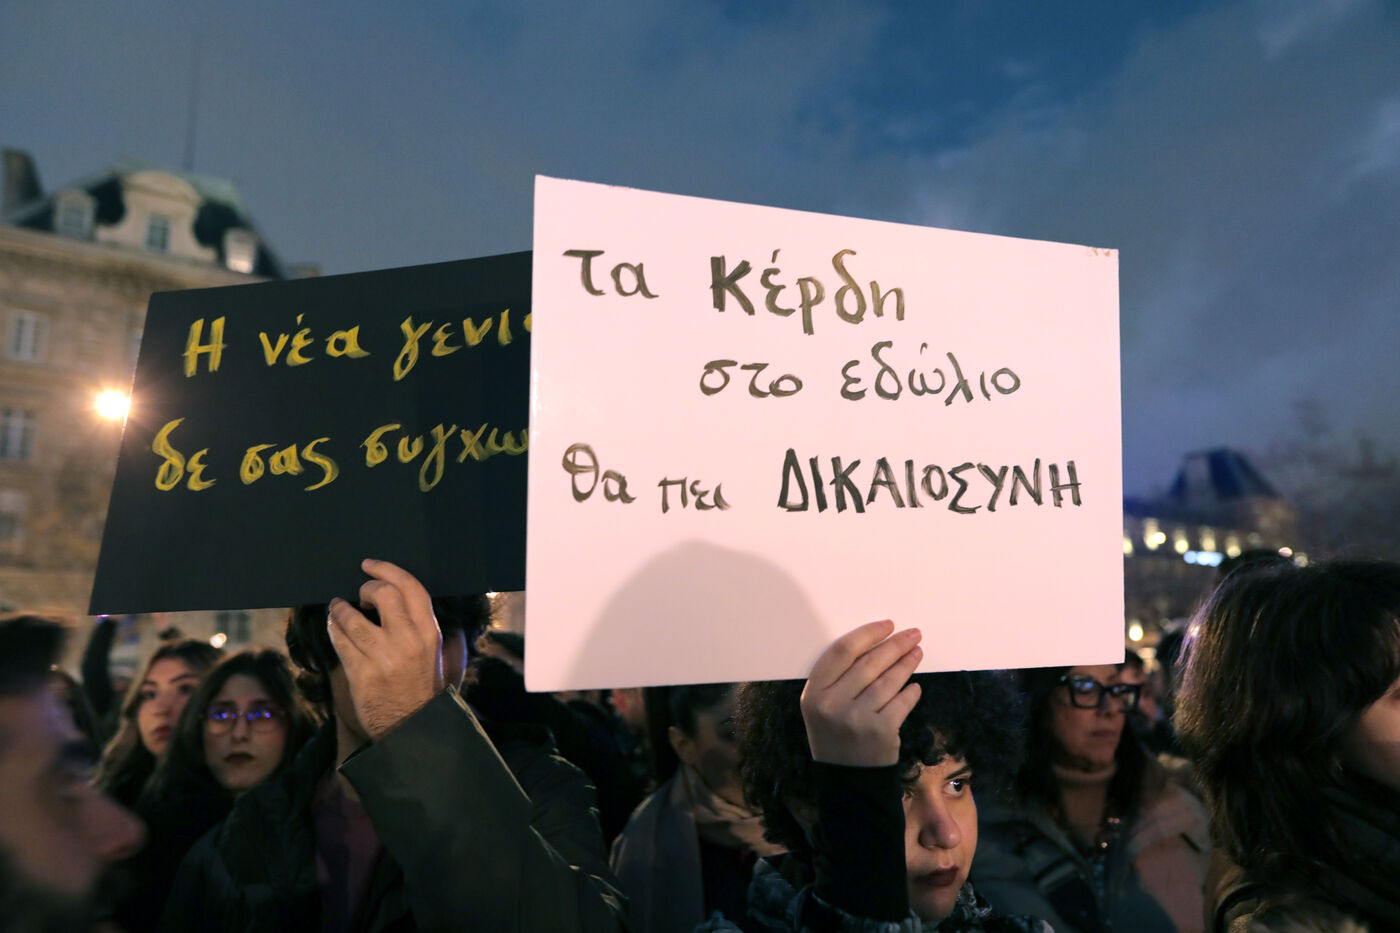 Η νέα
δε σας
τα κέρδη
στο εδώλιο
θα πει ΔΙΚΑΙΟΣΥΝΗ